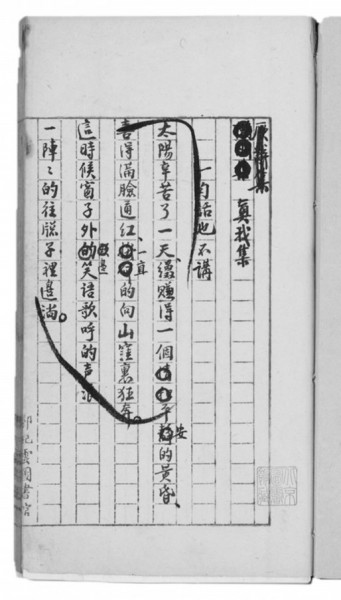 真我集
一句話也不講
太陽辛苦了一天,纔賺得一個平安的黃昏、
喜得滿臉通紅、一直的向山窪裏狂奔。
這時候窗子外邊的笑語歌呼的声浪
一陣〻的往牕子裡邊淌。